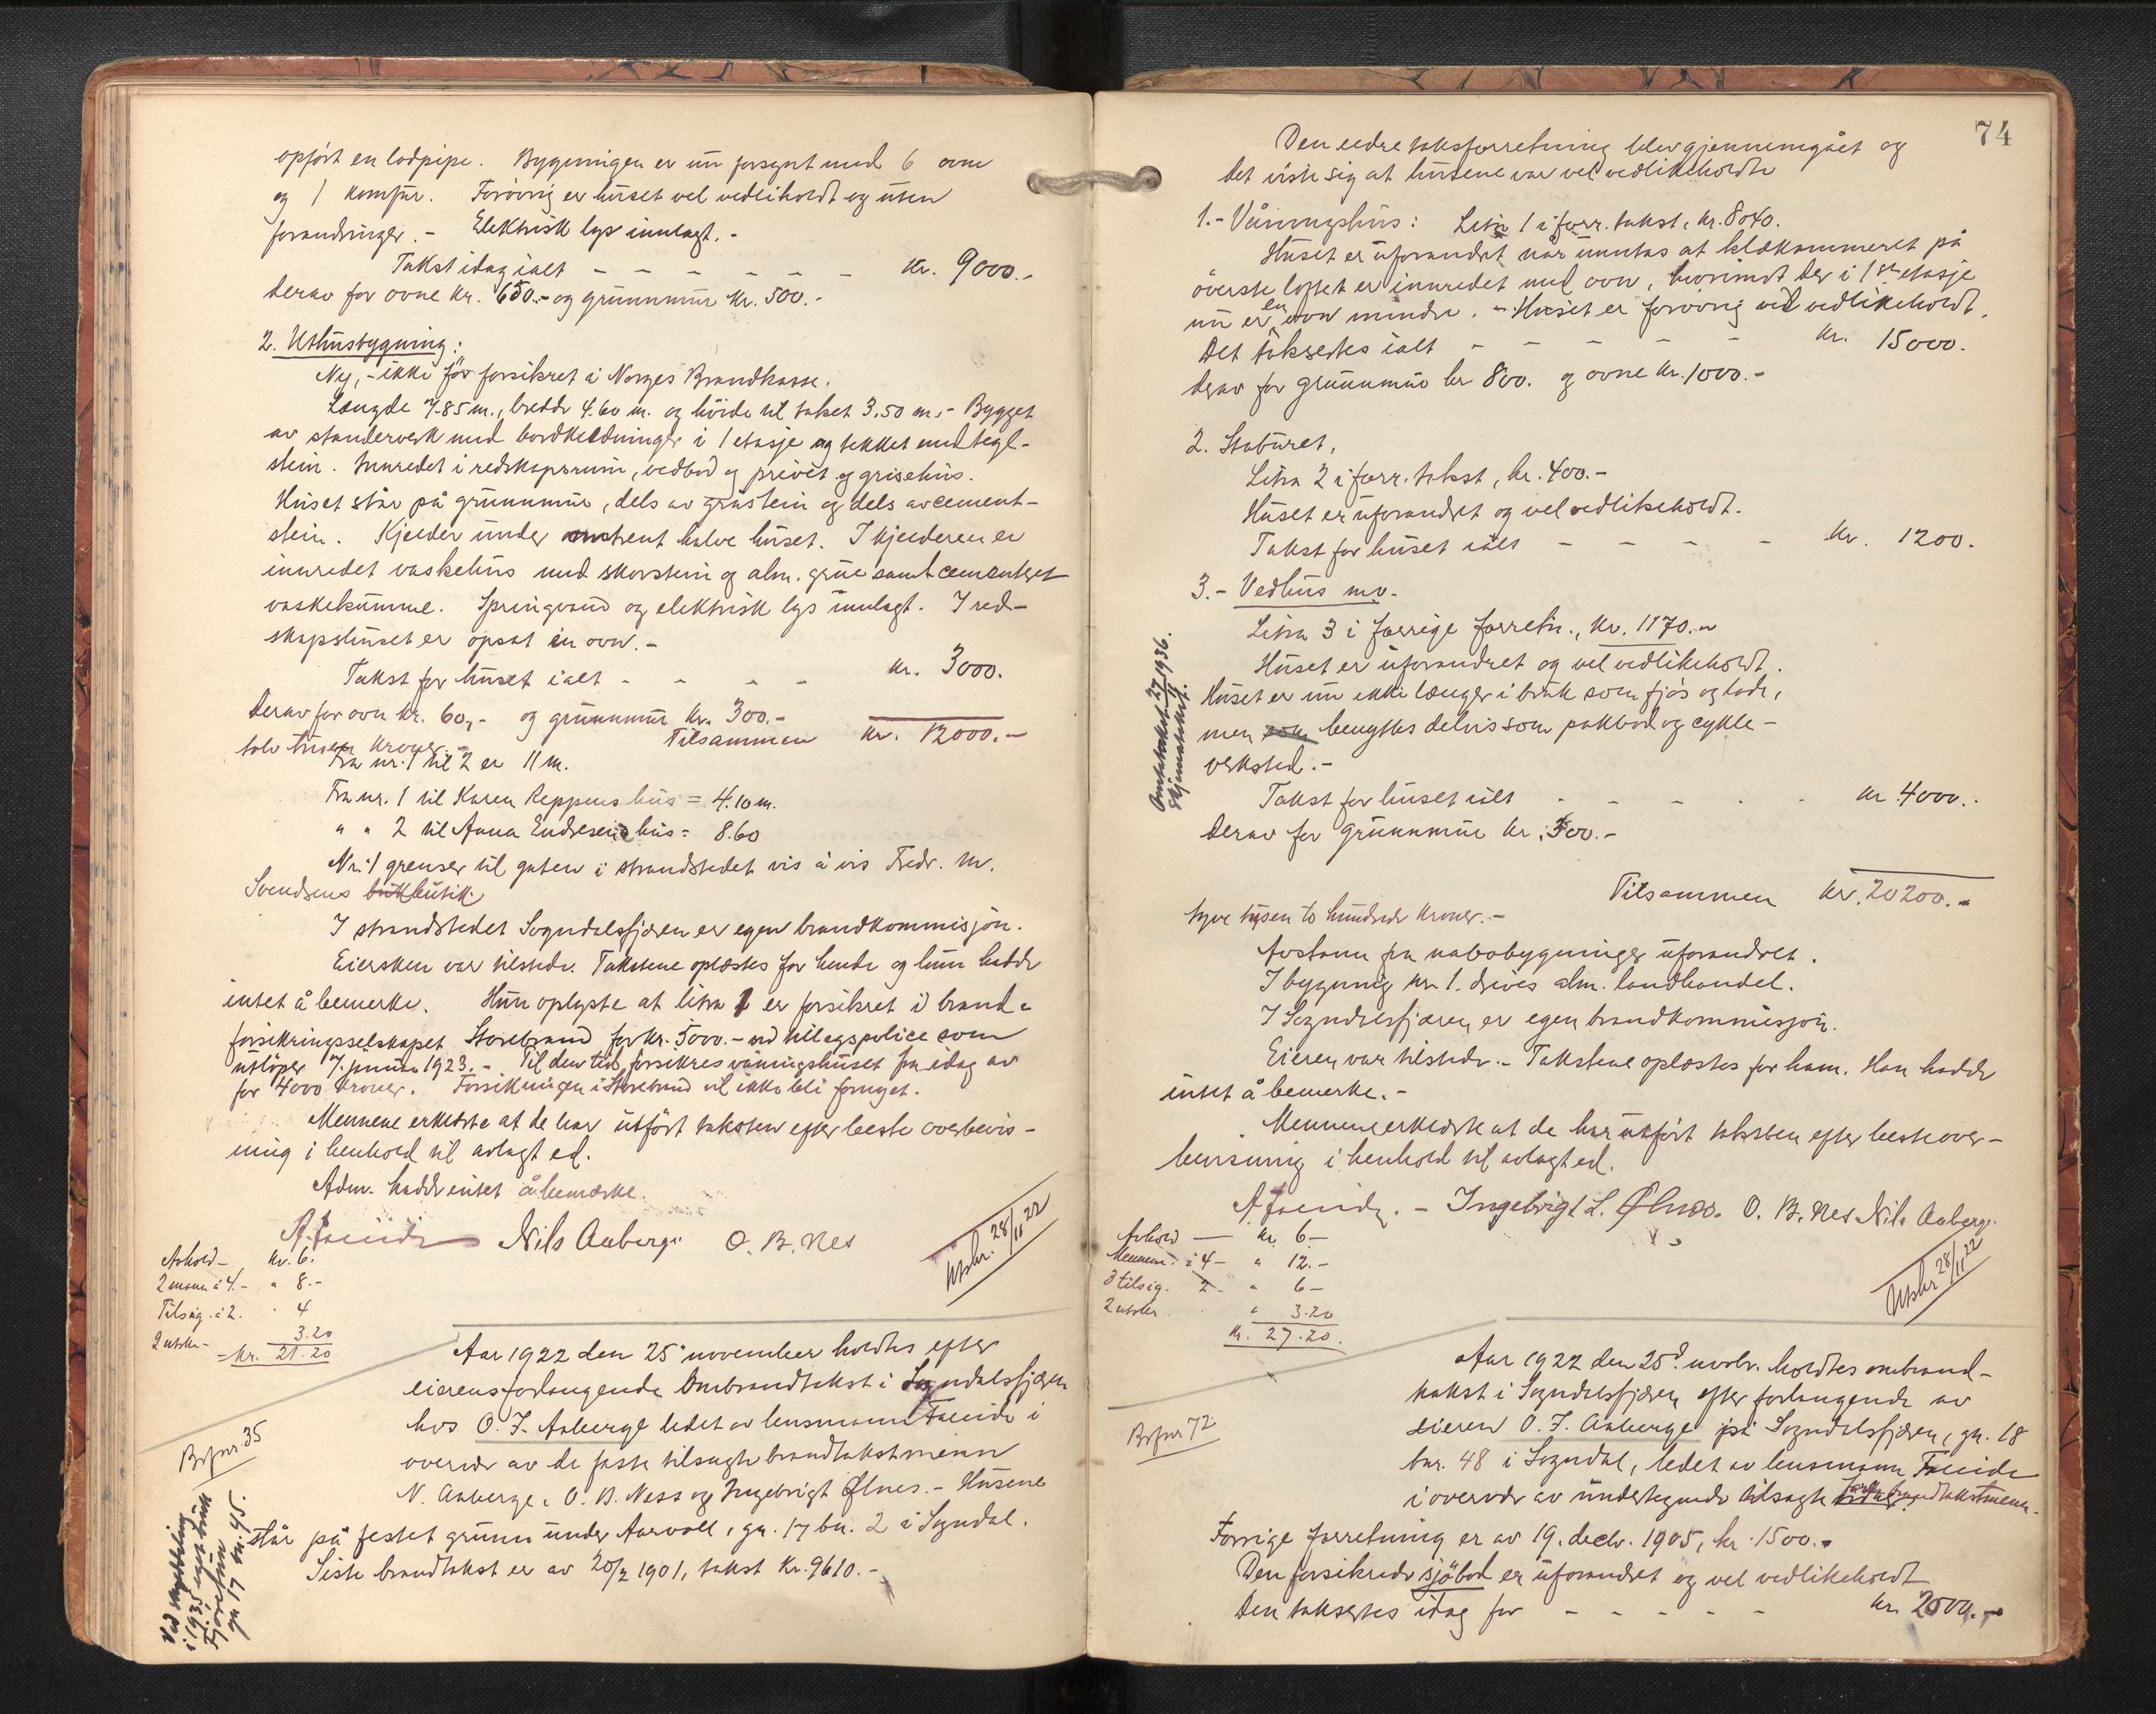 opført en lodpipe. Bygningen er nu forsynt med 6 ovne
og 1 komfur. Forøvrig er huset vel vedliholdt og uten
forandringer. - Elektrisk lys innlagt. -
Takst idag ialt - - - - - - - kr. 9000.-
Derav for ovne kr. 650.- og grunnmur kr. 500.-
2. Uthusbygning:
Ny, - ikke før forsikret i Norges Brandkasse.
Længde 7.85 m., bredde 4.60 m. og höide til taket 3.50 m. - Bygget
av standerverk med bordkledninger i 1 etasje og tekket med tegl-
stein. Innredet i redskapsrum, vedbod og privet og grisehus.
Huset står på grunnmur, dels av gråstein og dels av cement-
stein. Kjelder under omtrent halve huset. I kjelderen er
innredet vaskehus med skorstein og alm. grue samt cementert
vaskekumme. Springvand og elektrisk lys innlagt. I red-
skapshuset er opsat en ovn. -
Takst for huset ialt - - - - kr. 3000.
Derav for ovn kr. 60,- og grunnmur kr. 300.-
Tilsammen kr. 12000.-
tolv tusen kroner. -
Fra nr. 1 til 2 er 11 m.
Fra nr. 1 til Karen Reppens hus = 4.10 m.
" " 2 til Anna Endresens hus = 8.60
Nr. 1 grenser til gaten i strandstedet vis à vis Fredr. M.
Svendsens butik.
I strandstedet Sogndalsfjæren er egen brandkommisjon.
Eiersken var tilstede. Takstene oplæstes for hende og hun hadde
intet å bemerke. Hun oplyste at litra 1 er forsikret i brand-
forsikringsselskapet Storebrand for kr. 5000.- ved tillægspolice som
utløper 7. juni 1923. - Til den tid forsikres våningshuset fra idag av
for 4000 kroner. Forsikringen i Storebrand vil ikke bli fornyet.
Mennene erklærte at de har utført taksten efter beste overbevis-
ning i henhold til avlagt ed.
Adm. hadde intet å bemærke.
A. Foeide Nils Aaberge O. B. Nes
Utskr. 28/11 22
Avhold - kr. 6.
2 menn à 4.- " 8.-
Tilsig. à 2. " 4
2 utskr. - 3.20
= kr. 21.20
Aar 1922 den 25' november holdtes efter
eierens forlangende Ombrandtakst i Sogndalsfjæren
hos O. J. Aaberge ledet av lensmann Foeide i
overvær av de faste tilsagte brandtakstmenn
N. Aaberge, O. B. Ness og Ingebrigt Ølnes. - Husene
står på festet grunn under Aarvoll, gn. 17 bn. 2 i Sogndal.
Siste brandtakst er av 20/2 1901, takst kr. 9610.-
Brfnr. 35
Ved
i 1935
gn 17 bn. 95.
74
Den eldre taksforretning blev gjennemgået og
det viste sig at husene var vel vedlikeholdte
1. - Våningshus: Litra 1 i forr. takst, kr. 8040.
Huset er uforandret når unntas at klækammeret på
øverste loftet er innredet med ovn, hvorimot der i 1ste etasje
nu er en ovn mindre. - Huset er forøvrig vel vedlikeholdt.
Det taksertes ialt - - - - - kr. 15000.
derav for grunnmur kr 800. og ovne kr. 1000.-
2. Staburet.
Litra 2 i forr. takst, kr. 400.-
Huset er uforandret og vel vedlikeholdt.
Takst for huset ialt - - - - kr. 1200.
3. - Vedhus m.v.
Litra 3 i forrige forretn., kr. 1170.-
Huset er uforandret og vel vedlikeholdt.
Huset er nu ikke længer i bruk som fjøs og lade,
men som benyttes delvis som pakbod og cykle-
verksted. -
Takst for huset ialt - - - - - kr 4000.-
Derav for grunnmur kr. 300.-
Tilsammen kr. 20200.-
tyve tusen to hundrede kroner. -
Avstann fra nabobygninger uforandret.
I bygning nr. 1. drives alm. landhandel.
I Sogndalsfjæren er egen brandkommisjon.
Eieren var tilstede. - Takstene oplæstes for ham. Han hadde
intet å bemerke. -
Mennene erklærte at de har utført taksten efter beste over-
bevisning i henhold til avlagt ed.
A. Foeide. - Ingebrigt L. Ølnes. O. B. Nes Nils Aaberge.
Omtakstert 27/ 1936.
Utskr 28/11 22
Avhold - kr. 6-
Mennene à 4- " 12.-
3 tilsig. 2- " 6-
2 utskr " 3.20
kr. 27.20.
Aar 1922 den 25d. novbr. holdtes ombrand-
takst i Sogndalsfjæren efter forlangende av
eieren O. J. Aaberge på Sogndalsfjæren, gn. 18
bnr. 48 i Sogndal, ledet av lensmann Foeide
i overvær av undertegnede tilsagte brandtakstmenn.
Brfnr 72
Forrige forretning er av 19. decbr. 1905, kr. 1500.-
Den forsikrede sjøbod er uforandret og vel vedlikeholdt
Den taksertes idag for - - - - - kr. 2000.-